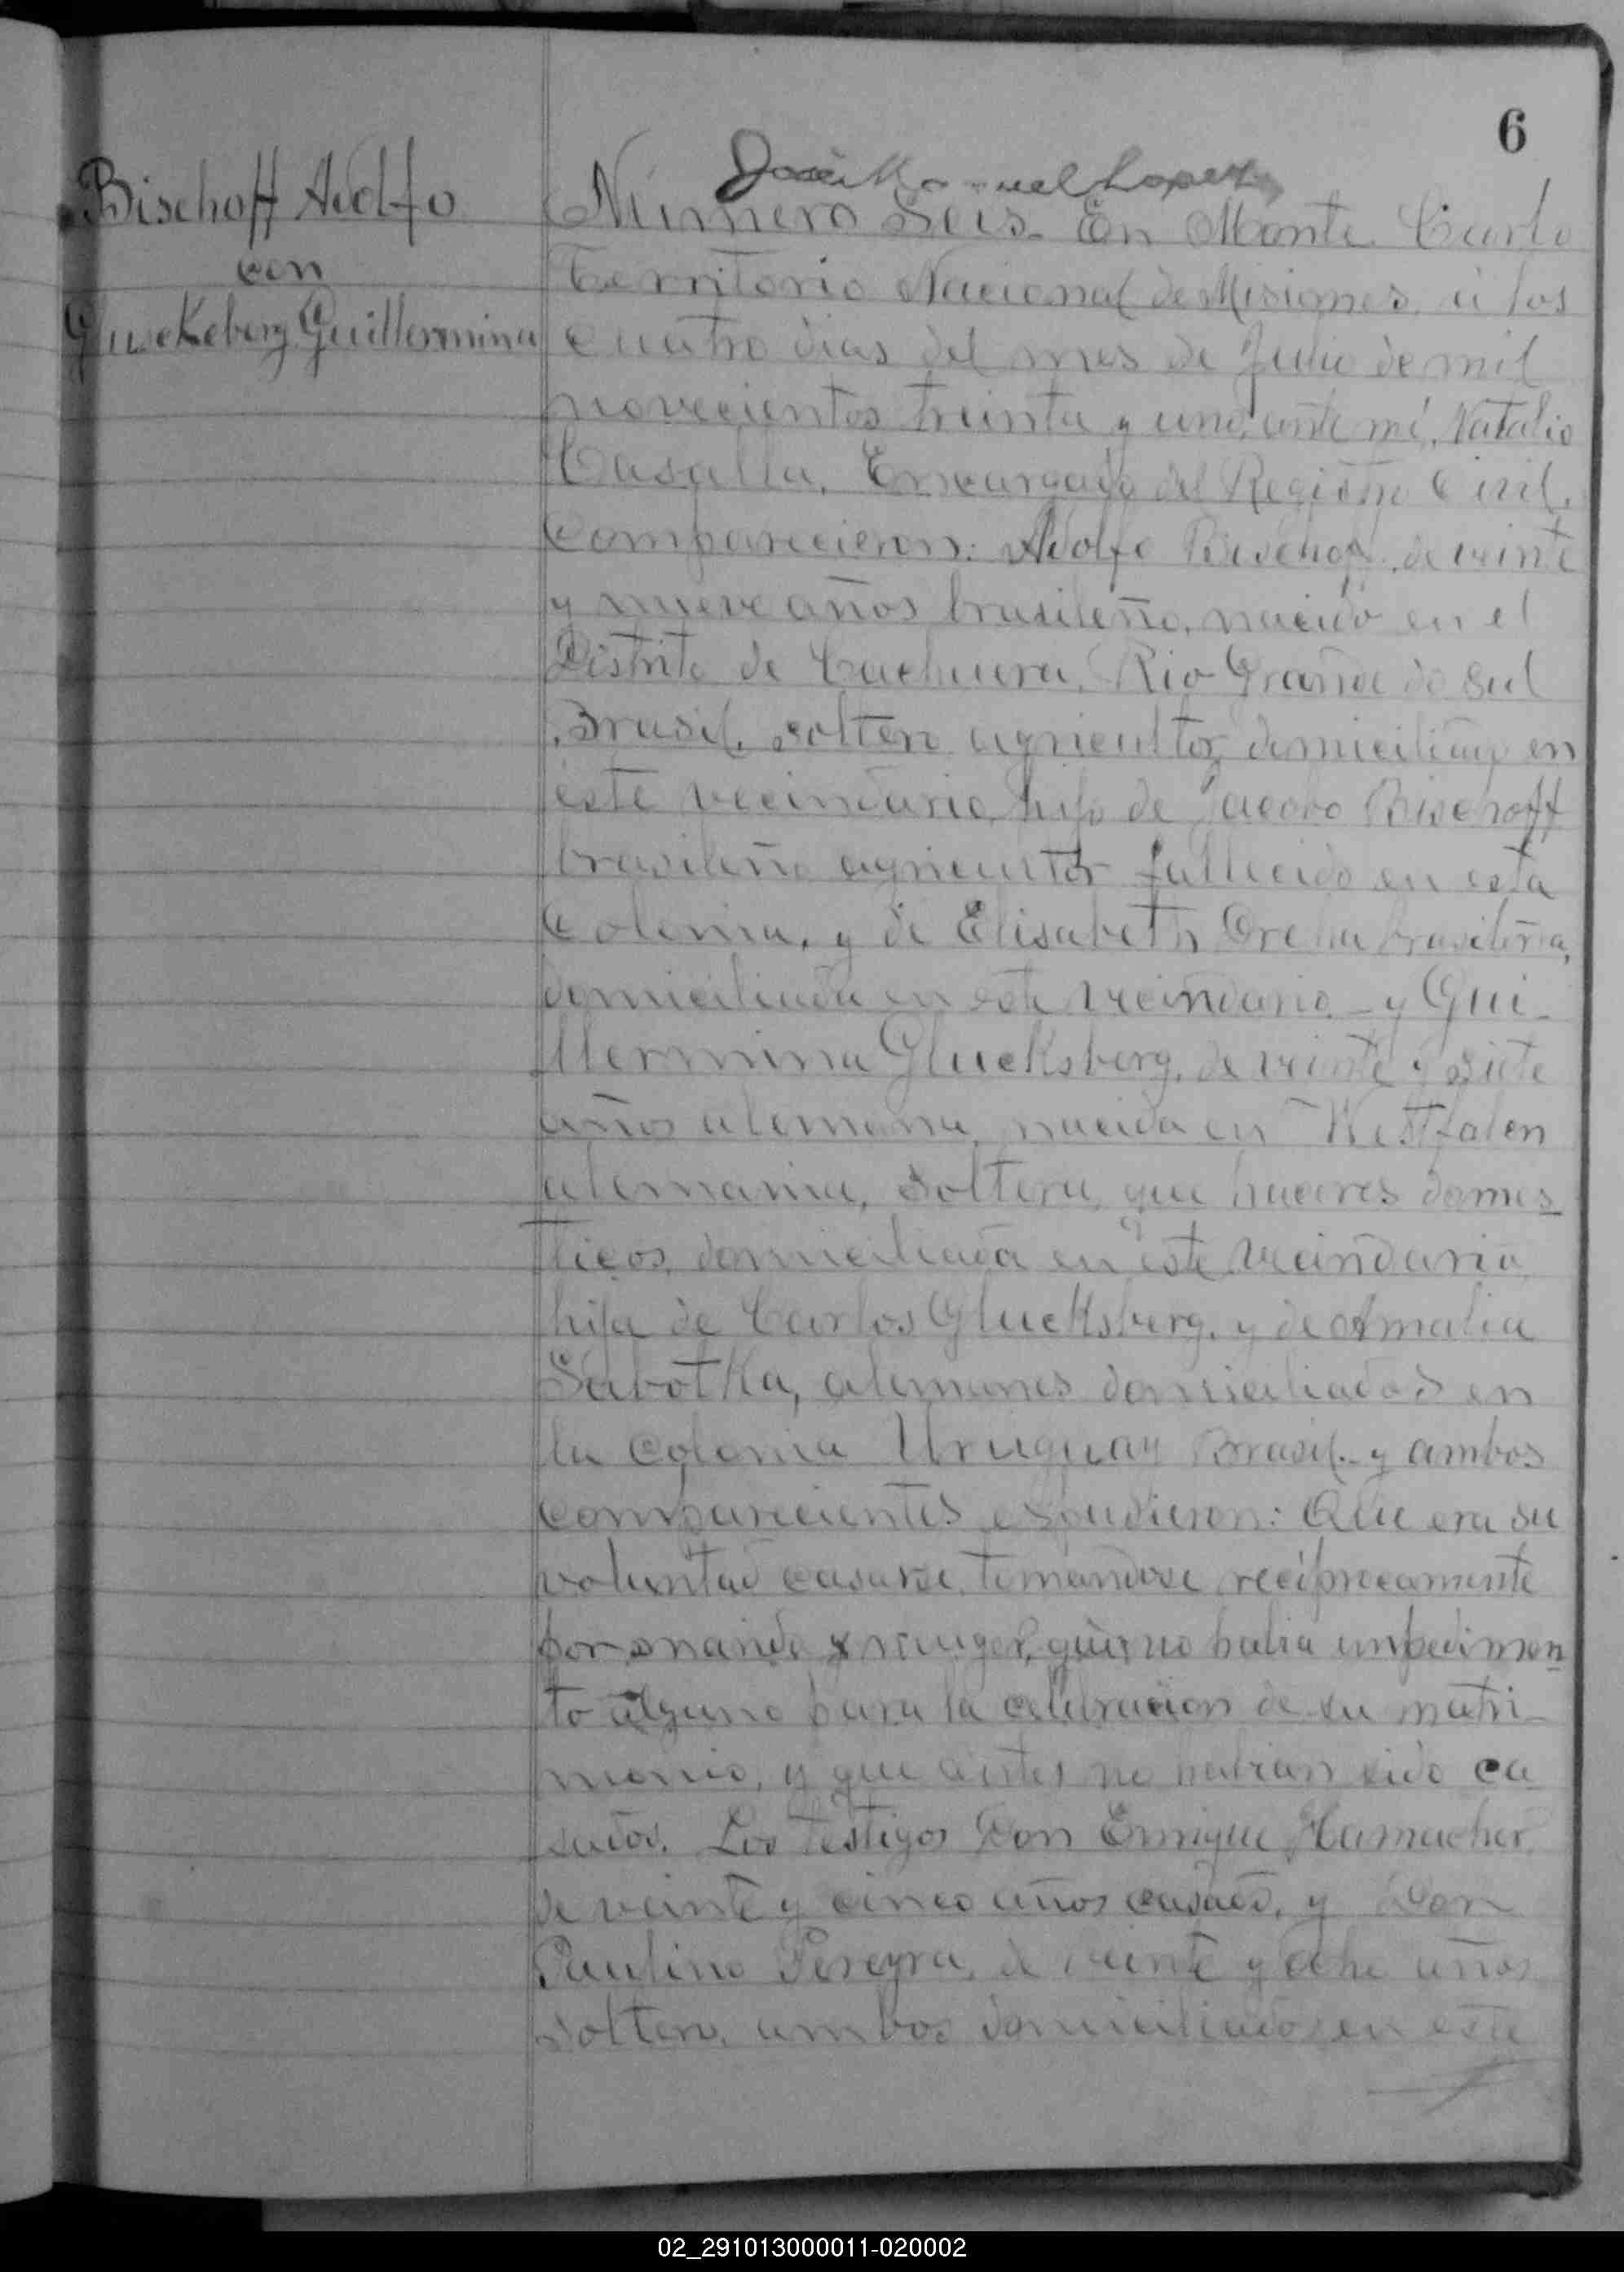 6
Bischoff Adolfo
con
Gluckeberg Guillermina
José Manuel Lopez
Número Seis. En Monte Carlo
Territorio Nacional de Misiones, á los
cuatro dias del mes de Julio de mil
novecientos treinta y uno, ante mí, Natalio
Casalla, Encargado del Registro Civil,
Comparecieron: Adolfo Bischoff, de veinte
y nueve años brasileño, nacido en el
Distrito de Cachuera, Rio Grande do Sul
Brasil, soltero agricultor, domiciliado en
este vecindario, hijo de Jacobo Bischoff
brasileño agricultor fallecido en esta
Colonia, y de Elisabeth brasileña,
domiciliada en este vecindario. y Gui-
llermina Glucksberg, de veinte y siete
años alemana, nacida en Westfalen
alemania, soltera, que haceres domes
ticos, domiciliada en este vecindario
hija de Carlos Glucksberg, y de Amalia
Sabotka, alemanes domiciliados en
la Colonia Uruguay Brasil. y ambos
comparecientes espusieron: Que era su
voluntad casarse, tomandose recíprocamente
por marido y muger, que no habia impedimen
to alguno para la celebracion de su matri-
monio, y que antes no habian sido ca
sados. Los testigos Don Enrique Hamacher
de veinte y cinco años casado, y Don
Paulino Pereyra, de veinte y ocho años
soltero, ambos domiciliados en este
02_291013000011-020002